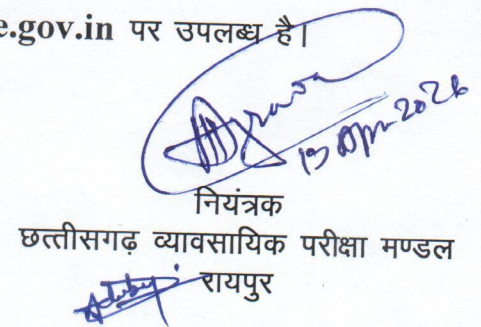 e.gov.in पर उपलब्ध है।
13 Apr 2026
नियंत्रक
छत्तीसगढ़ व्यावसायिक परीक्षा मण्डल
रायपुर